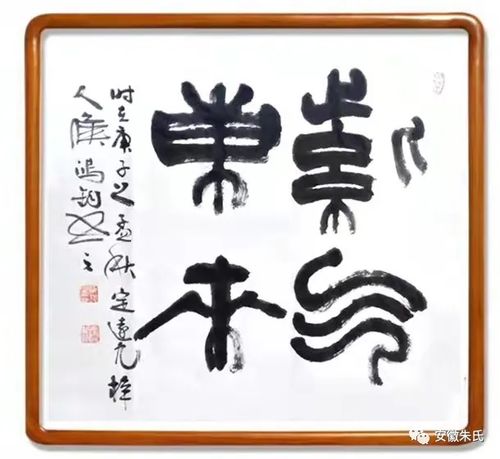 紫气
東来
时在庚子之孟秋定远九梓
人鸿钧书之
安徽朱氏